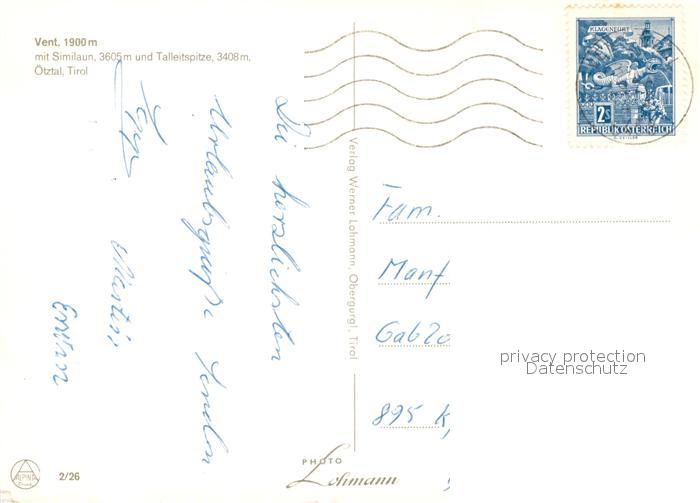 Vent, 1900 m
mit Similaun, 3605 m und Talleitspitze, 3408 m,
Ötztal, Tirol
KLAGENFURT
2S
REPUBLIK ÖSTERREICH
Die herzlichsten
Urlaubsgrüße senden
Erwin
Verlag Werner Lohmann, Obergurgl, Tirol
Fam.
Manf
Gablo
895 K,
privacy protection
Datenschutz
PHOTO
Lohmann
ALPINA
2/26